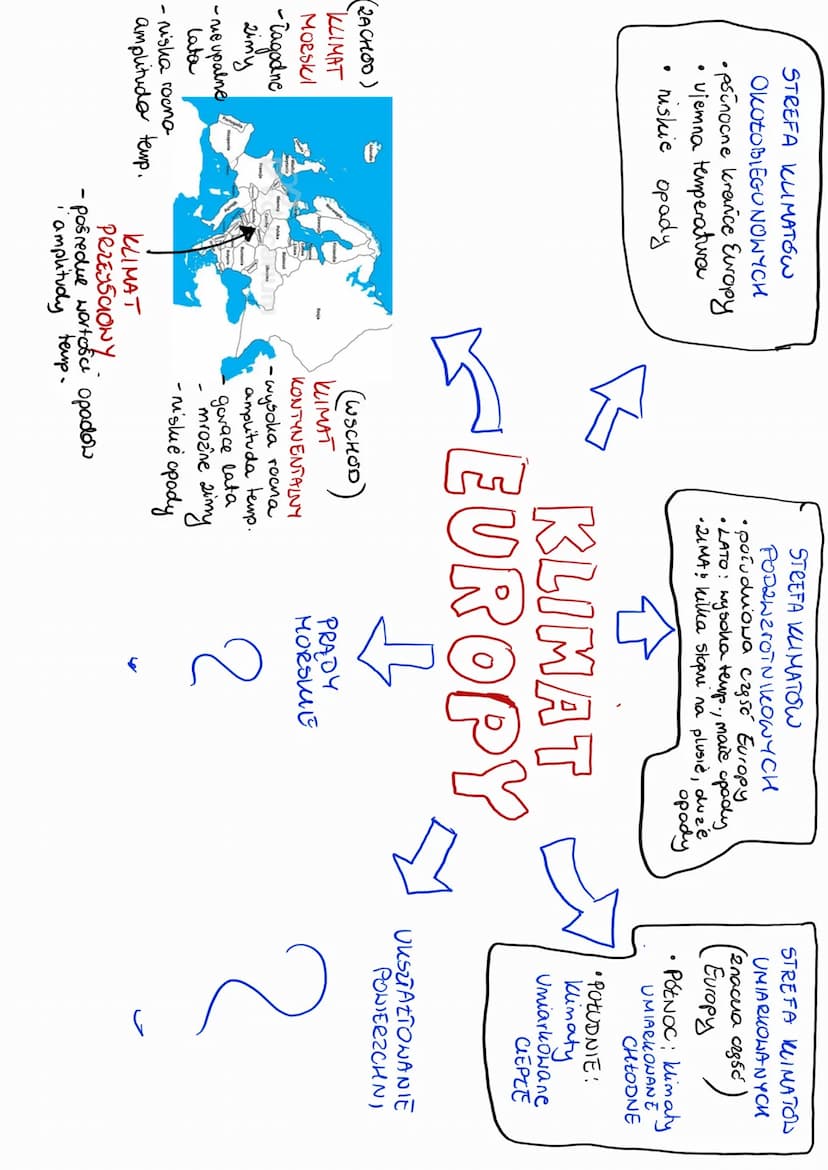 STREFA KLIMATÓW
OKOŁOBIEGUNOWYCH
• północne krańce Europy
• ujemna temperatura
• niskie opady
STREFA KLIMATÓW
PODZWROTNIKOWYCH
• południowa część Europy
• LATO: wysoka temp., małe opady
• ZIMA: kilka stopni na plusie, duże
opady
STREFA KLIMATÓW
UMIARKOWANYCH
(znaczna część
Europy)
• PÓŁNOC: klimaty
UMIARKOWANE
CHŁODNE
• POŁUDNIE:
klimaty
umiarkowane
CIEPŁE
KLIMAT
EUROPY
(ZACHÓD)
KLIMAT
MORSKI
- łagodne
zimy
- nieupalne
lata
- niska roczna
amplituda temp.
(WSCHÓD)
KLIMAT
KONTYNENTALNY
- wysoka roczna
amplituda temp.
- gorące lata
- mroźne zimy
- niskie opady
KLIMAT
PRZEJŚCIOWY
- pośrednie wartości opadów
i amplitudy temp.
PRĄDY
MORSKIE
?
UKSZTAŁTOWANIE
POWIERZCHNI
?